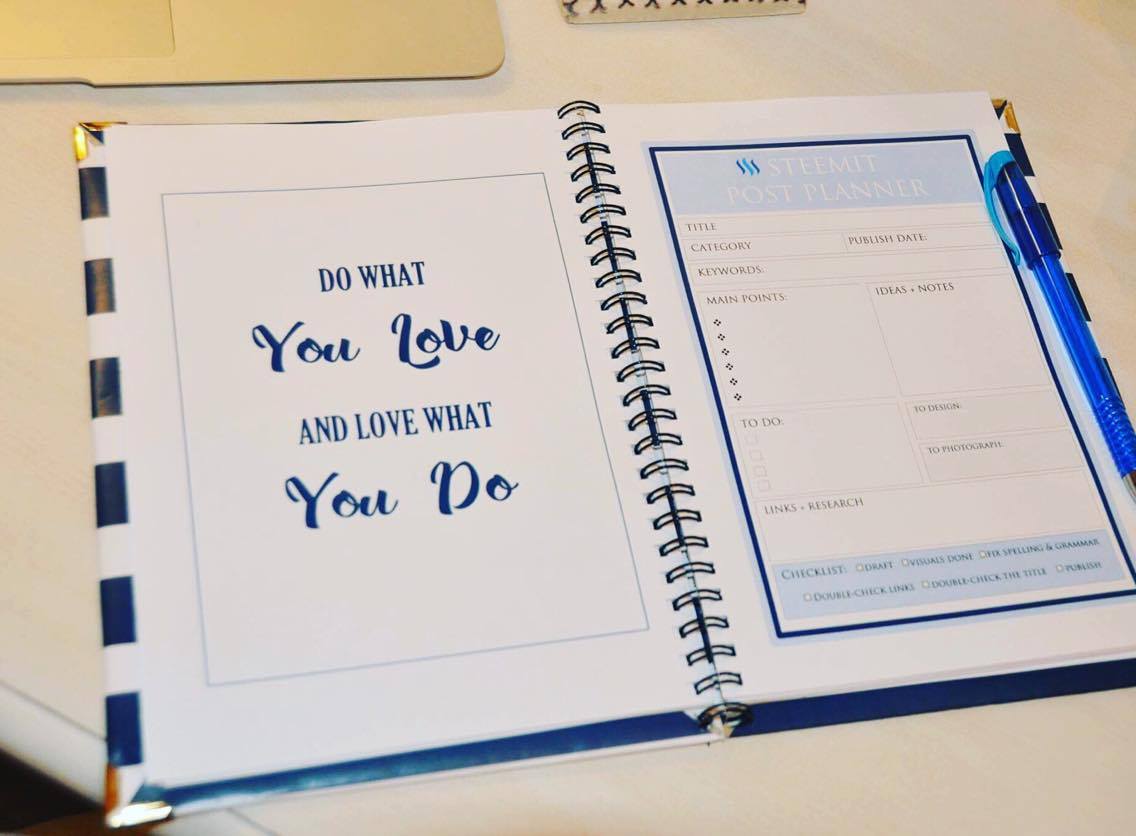 DO WHAT
You Love
AND LOVE WHAT
You Do
STEEMIT
POST PLANNER
TITLE
CATEGORY
PUBLISH DATE:
KEYWORDS:
MAIN POINTS:
IDEAS + NOTES
TO DO:
TO DESIGN:
TO PHOTOGRAPH:
LINKS + RESEARCH
CHECKLIST: DRAFT VISUALS DONE FIX SPELLING & GRAMMAR
DOUBLE-CHECK LINKS DOUBLE-CHECK THE TITLE PUBLISH